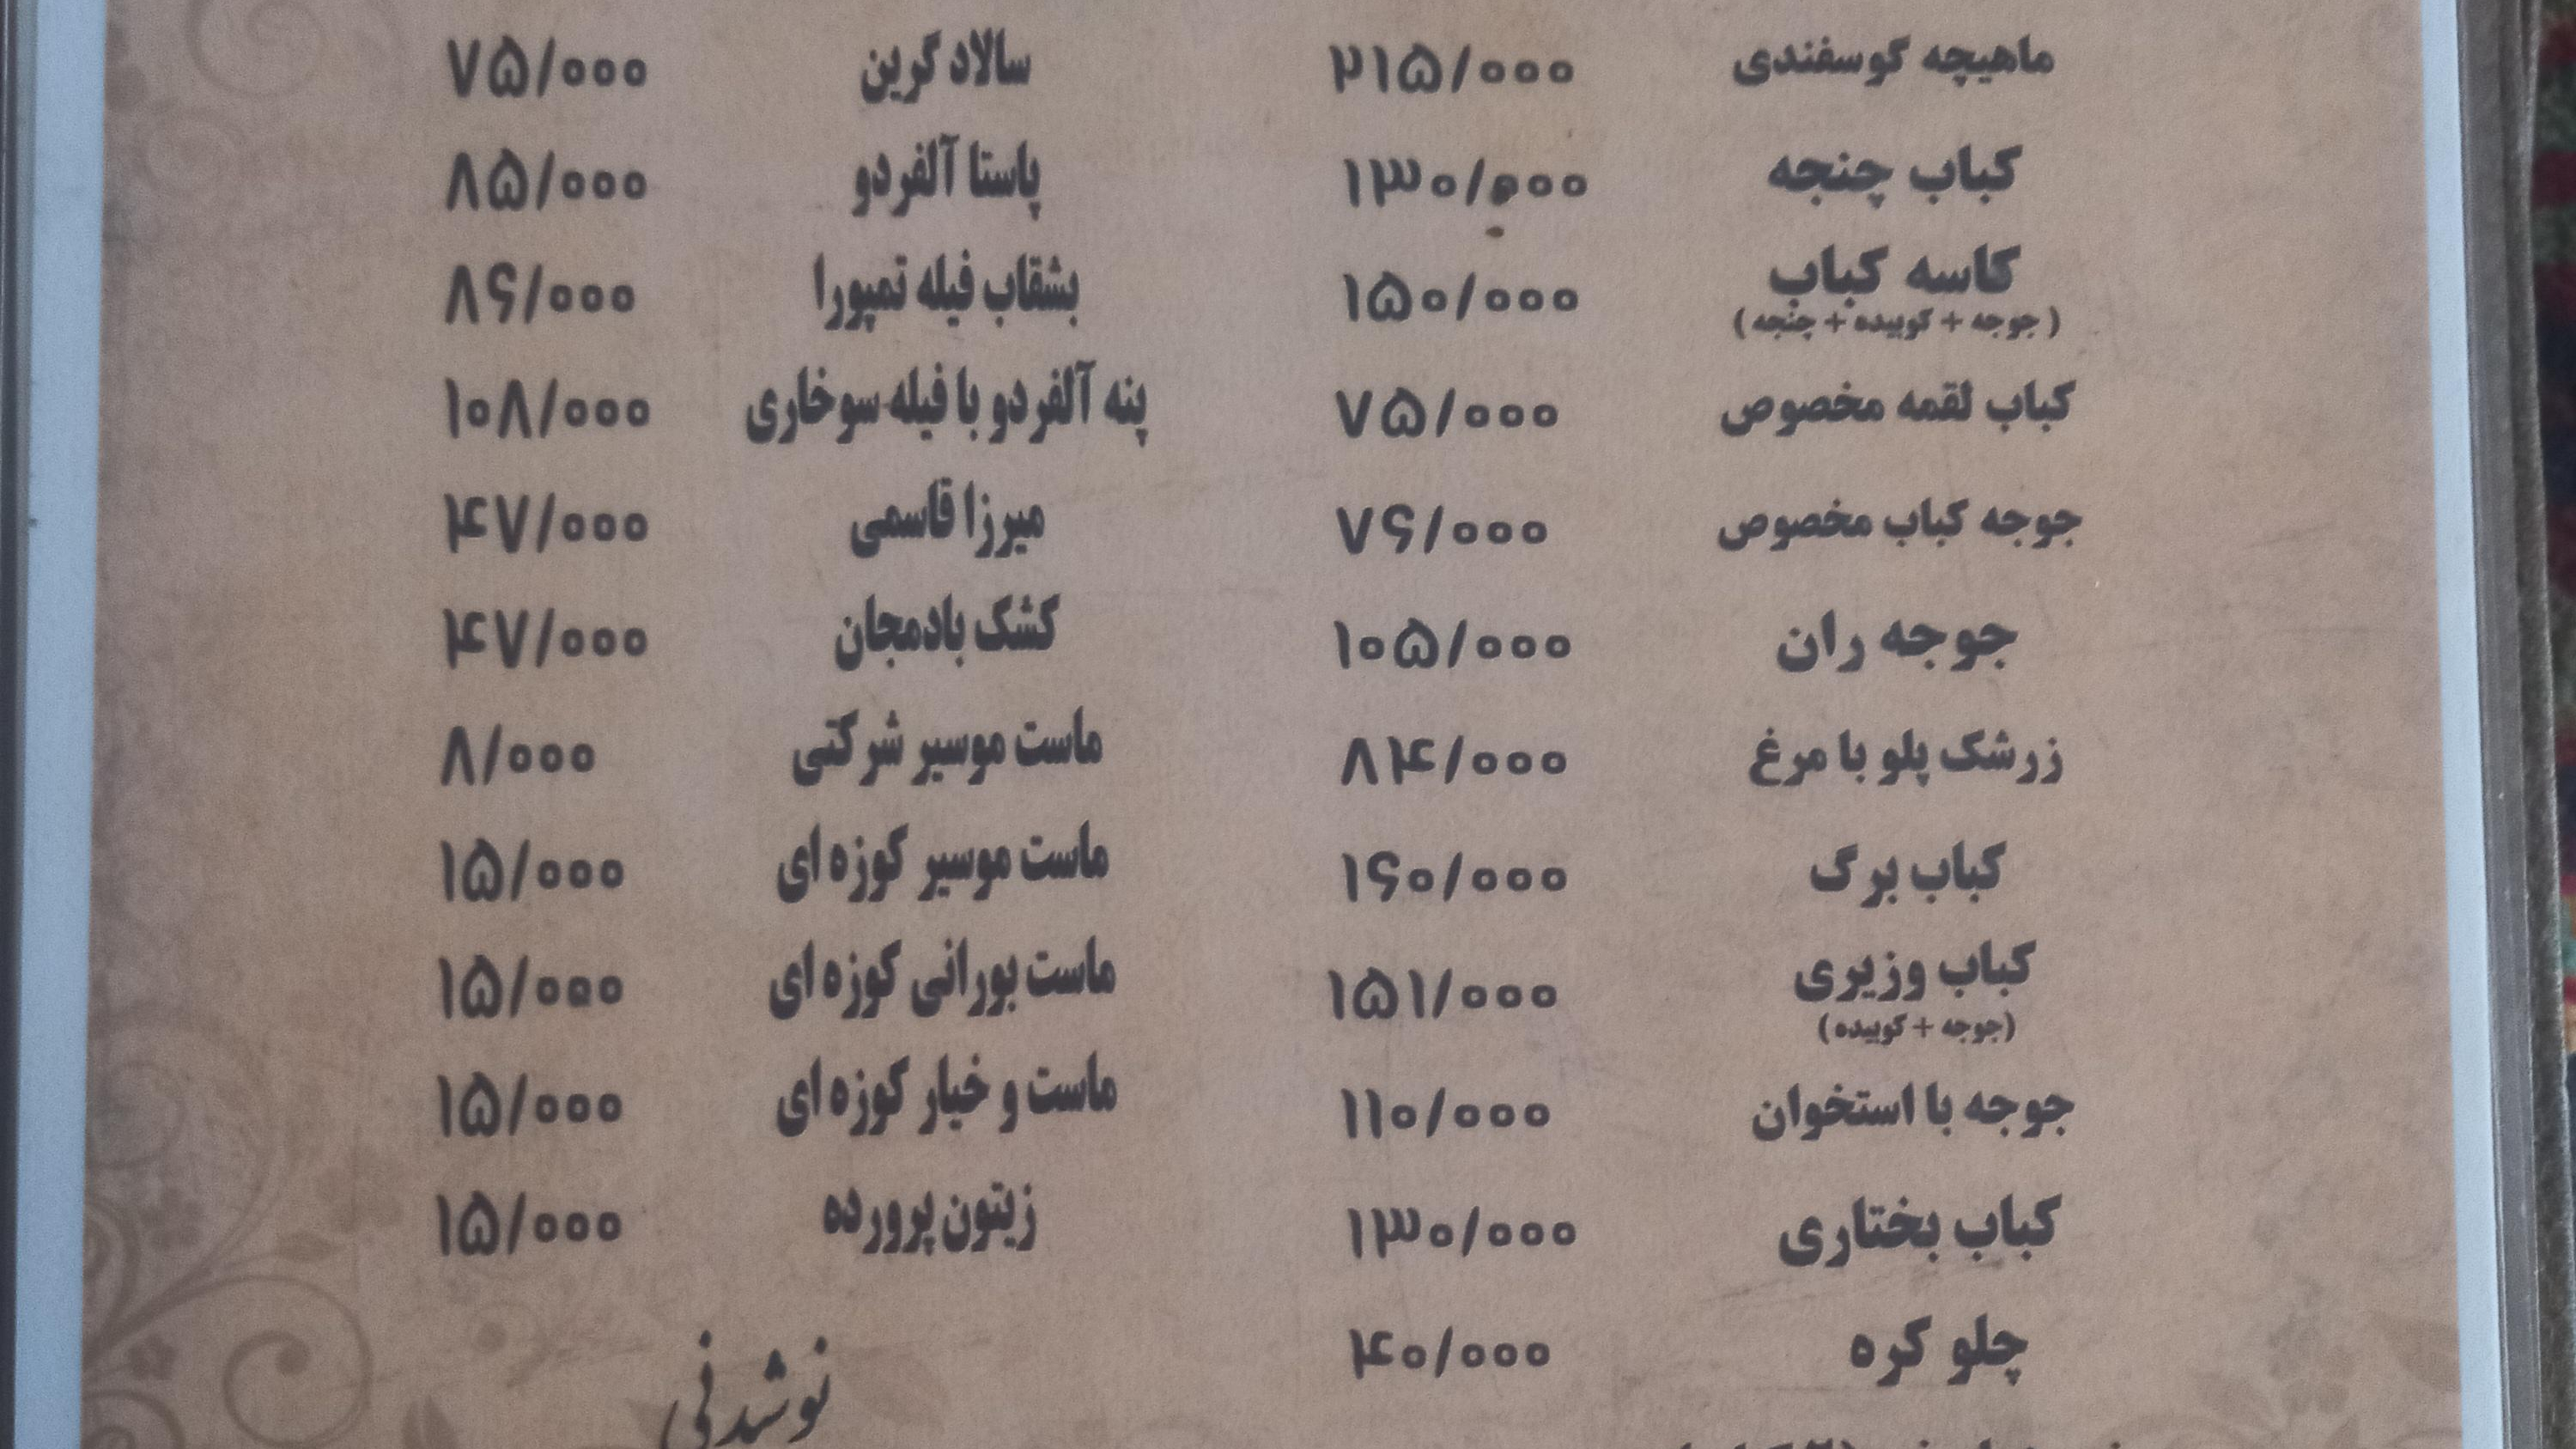 ماهیچه گوسفندی ۲۱۵/۰۰۰
کباب چنجه ۱۳۰/۰۰۰
کاسه کباب ۱۵۰/۰۰۰
( جوجه + کوبیده + چنجه )
کباب لقمه مخصوص ۷۵/۰۰۰
جوجه کباب مخصوص ۷۶/۰۰۰
جوجه ران ۱۰۵/۰۰۰
زرشک پلو با مرغ ۸۴/۰۰۰
کباب برگ ۱۶۰/۰۰۰
کباب وزیری ۱۵۱/۰۰۰
(جوجه + کوبیده)
جوجه با استخوان ۱۱۰/۰۰۰
کباب بختاری ۱۳۰/۰۰۰
چلو کره ۴۰/۰۰۰
سالاد گرین ۷۵/۰۰۰
پاستا آلفردو ۸۵/۰۰۰
بشقاب فیله تمپورا ۸۶/۰۰۰
پنه آلفردو با فیله سوخاری ۱۰۸/۰۰۰
میرزا قاسمی ۴۷/۰۰۰
کشک بادمجان ۴۷/۰۰۰
ماست موسیر شرکتی ۸/۰۰۰
ماست موسیر کوزه ای ۱۵/۰۰۰
ماست بورانی کوزه ای ۱۵/۰۰۰
ماست و خیار کوزه ای ۱۵/۰۰۰
زیتون پرورده ۱۵/۰۰۰
نوشدنی